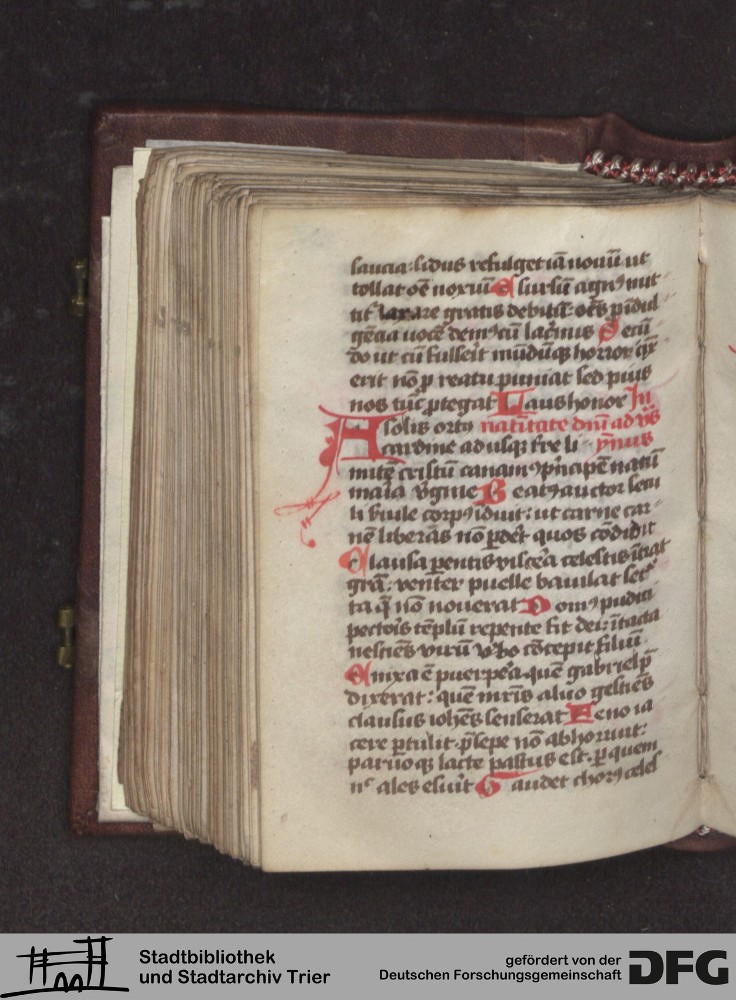 saucia: sidus refulget iā nouū ut
tollat oē noxiū E sursum agnꝰ mit
tit laxare gratis debitū: oēs ꝓ īdul
gēcia uocē demꝰ cū lac̓mis S ecū
do ut cū fulserit mūdūqꝫ horror cīx
erit nō ꝓ reatu puniat sed pius
nos tūc ꝓtegat L aus honor In
A solis ortꝰ natiuitate dn̄i ad vs̄
cardine ad usqꝫ tre li ymnus
mitē cristū canamꝰ pn̄cipē natū
maīa v̓gine B eatꝰ auctor secu
li ẜuile corpꝰ iduit: ut carne car
nē liberās nō ꝑdet quos cōdidit
C lausa parentis viscēa celestis ītrat
grā: venter puelle baiulat sec
ta q̄ nō nouerat D omꝰ pudici
pectoīs tēplū repente fit dei: ītacta
nesciēs virū v̓bo cōcepit filiū
E nixa ē puerpēa quē gabriel p̄
dixerat: quē mr̄is aluo gestiēs
clausus iohēs senserat F eno ia
cere ꝑtulit p̄sepe nō abhorruit:
paruoqꝫ lacte pastus est ꝑ quem
nc̄ ales esurit G audet chorꝰ celes
Stadtbibliothek
und Stadtarchiv Trier
gefördert von der
Deutschen Forschungsgemeinschaft
DFG